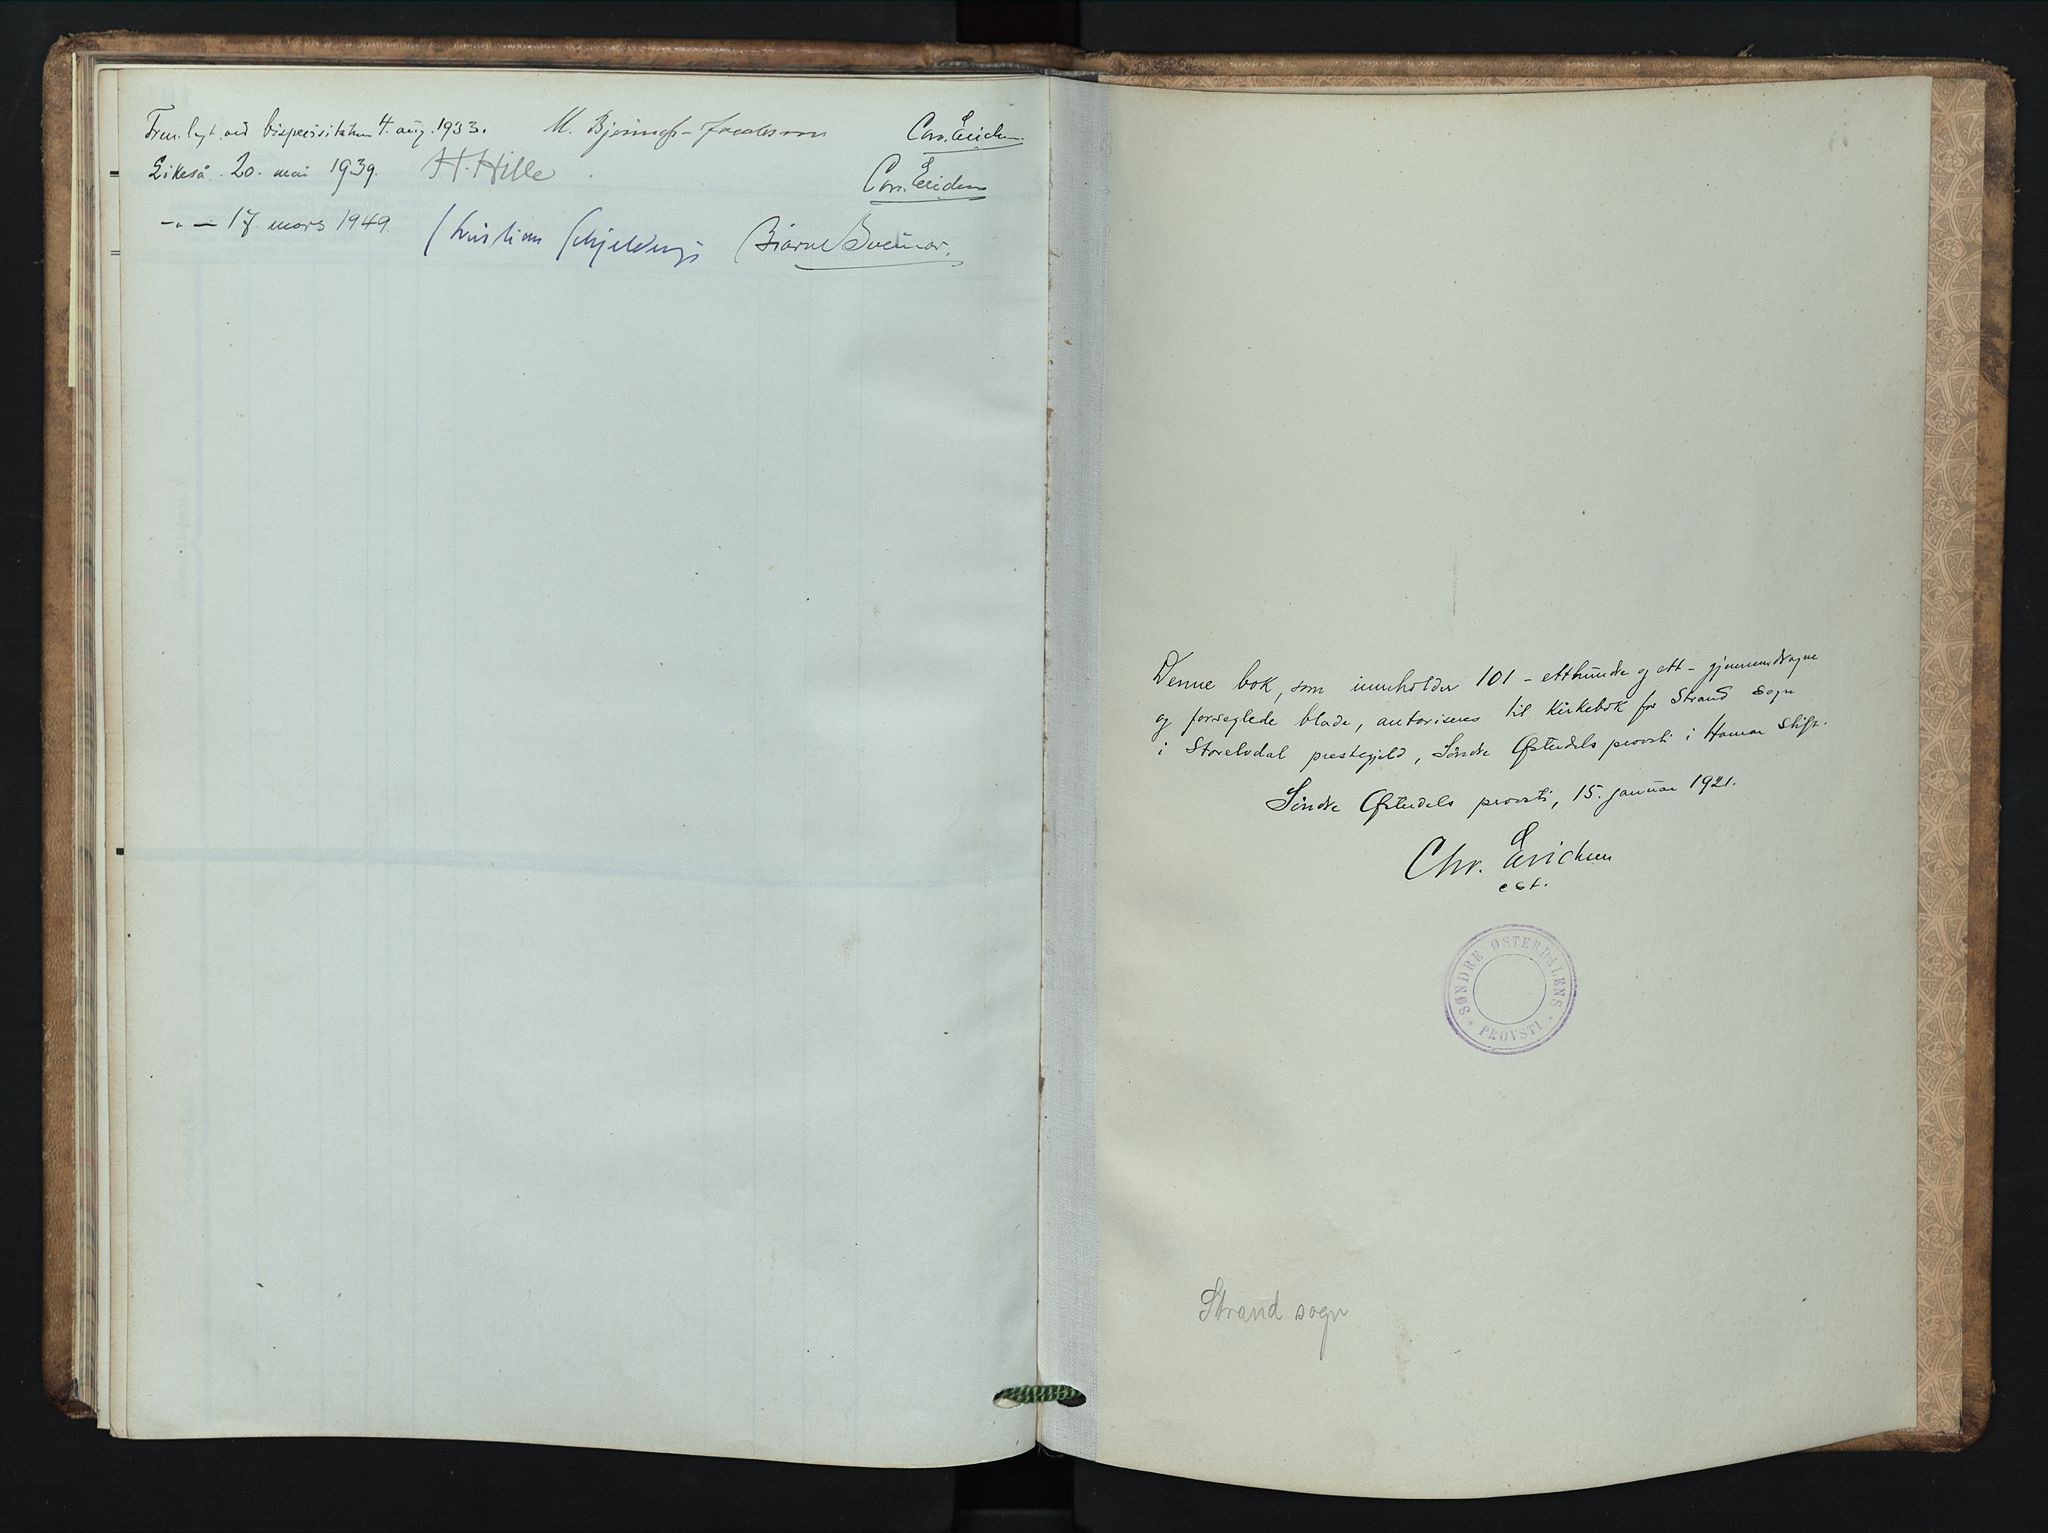 Freml. ved bispevisitatsen 4. aug. 1933. M. Bjønness-Jacobsen Chr. Erichsen
Likeså 20. mai 1939. H. Hille Chr. Erichsen
-"- 17 mars 1949 Kristian Schjelderup Bjarne
Denne bok, som inneholder 101 - etthundre og ett - gjennemdragne
og forseglede blade, autoriseres til kirkebok for Strand sogn
i Storelvdal prestegjeld, Søndre Østerdals provsti i Hamar stift.
Søndre Østerdals provsti, 15. januar 1921.
Chr. Erichsen
cst.
SØNDRE ØSTERDALENS
* PROVSTI *
Strand sogn